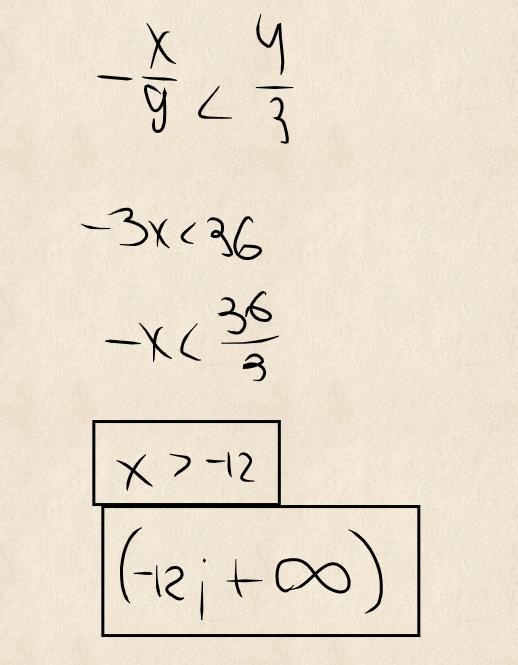 -x/9 < 4/3
-3x < 36
-x < 36/3
x > -12
(-12; +∞)